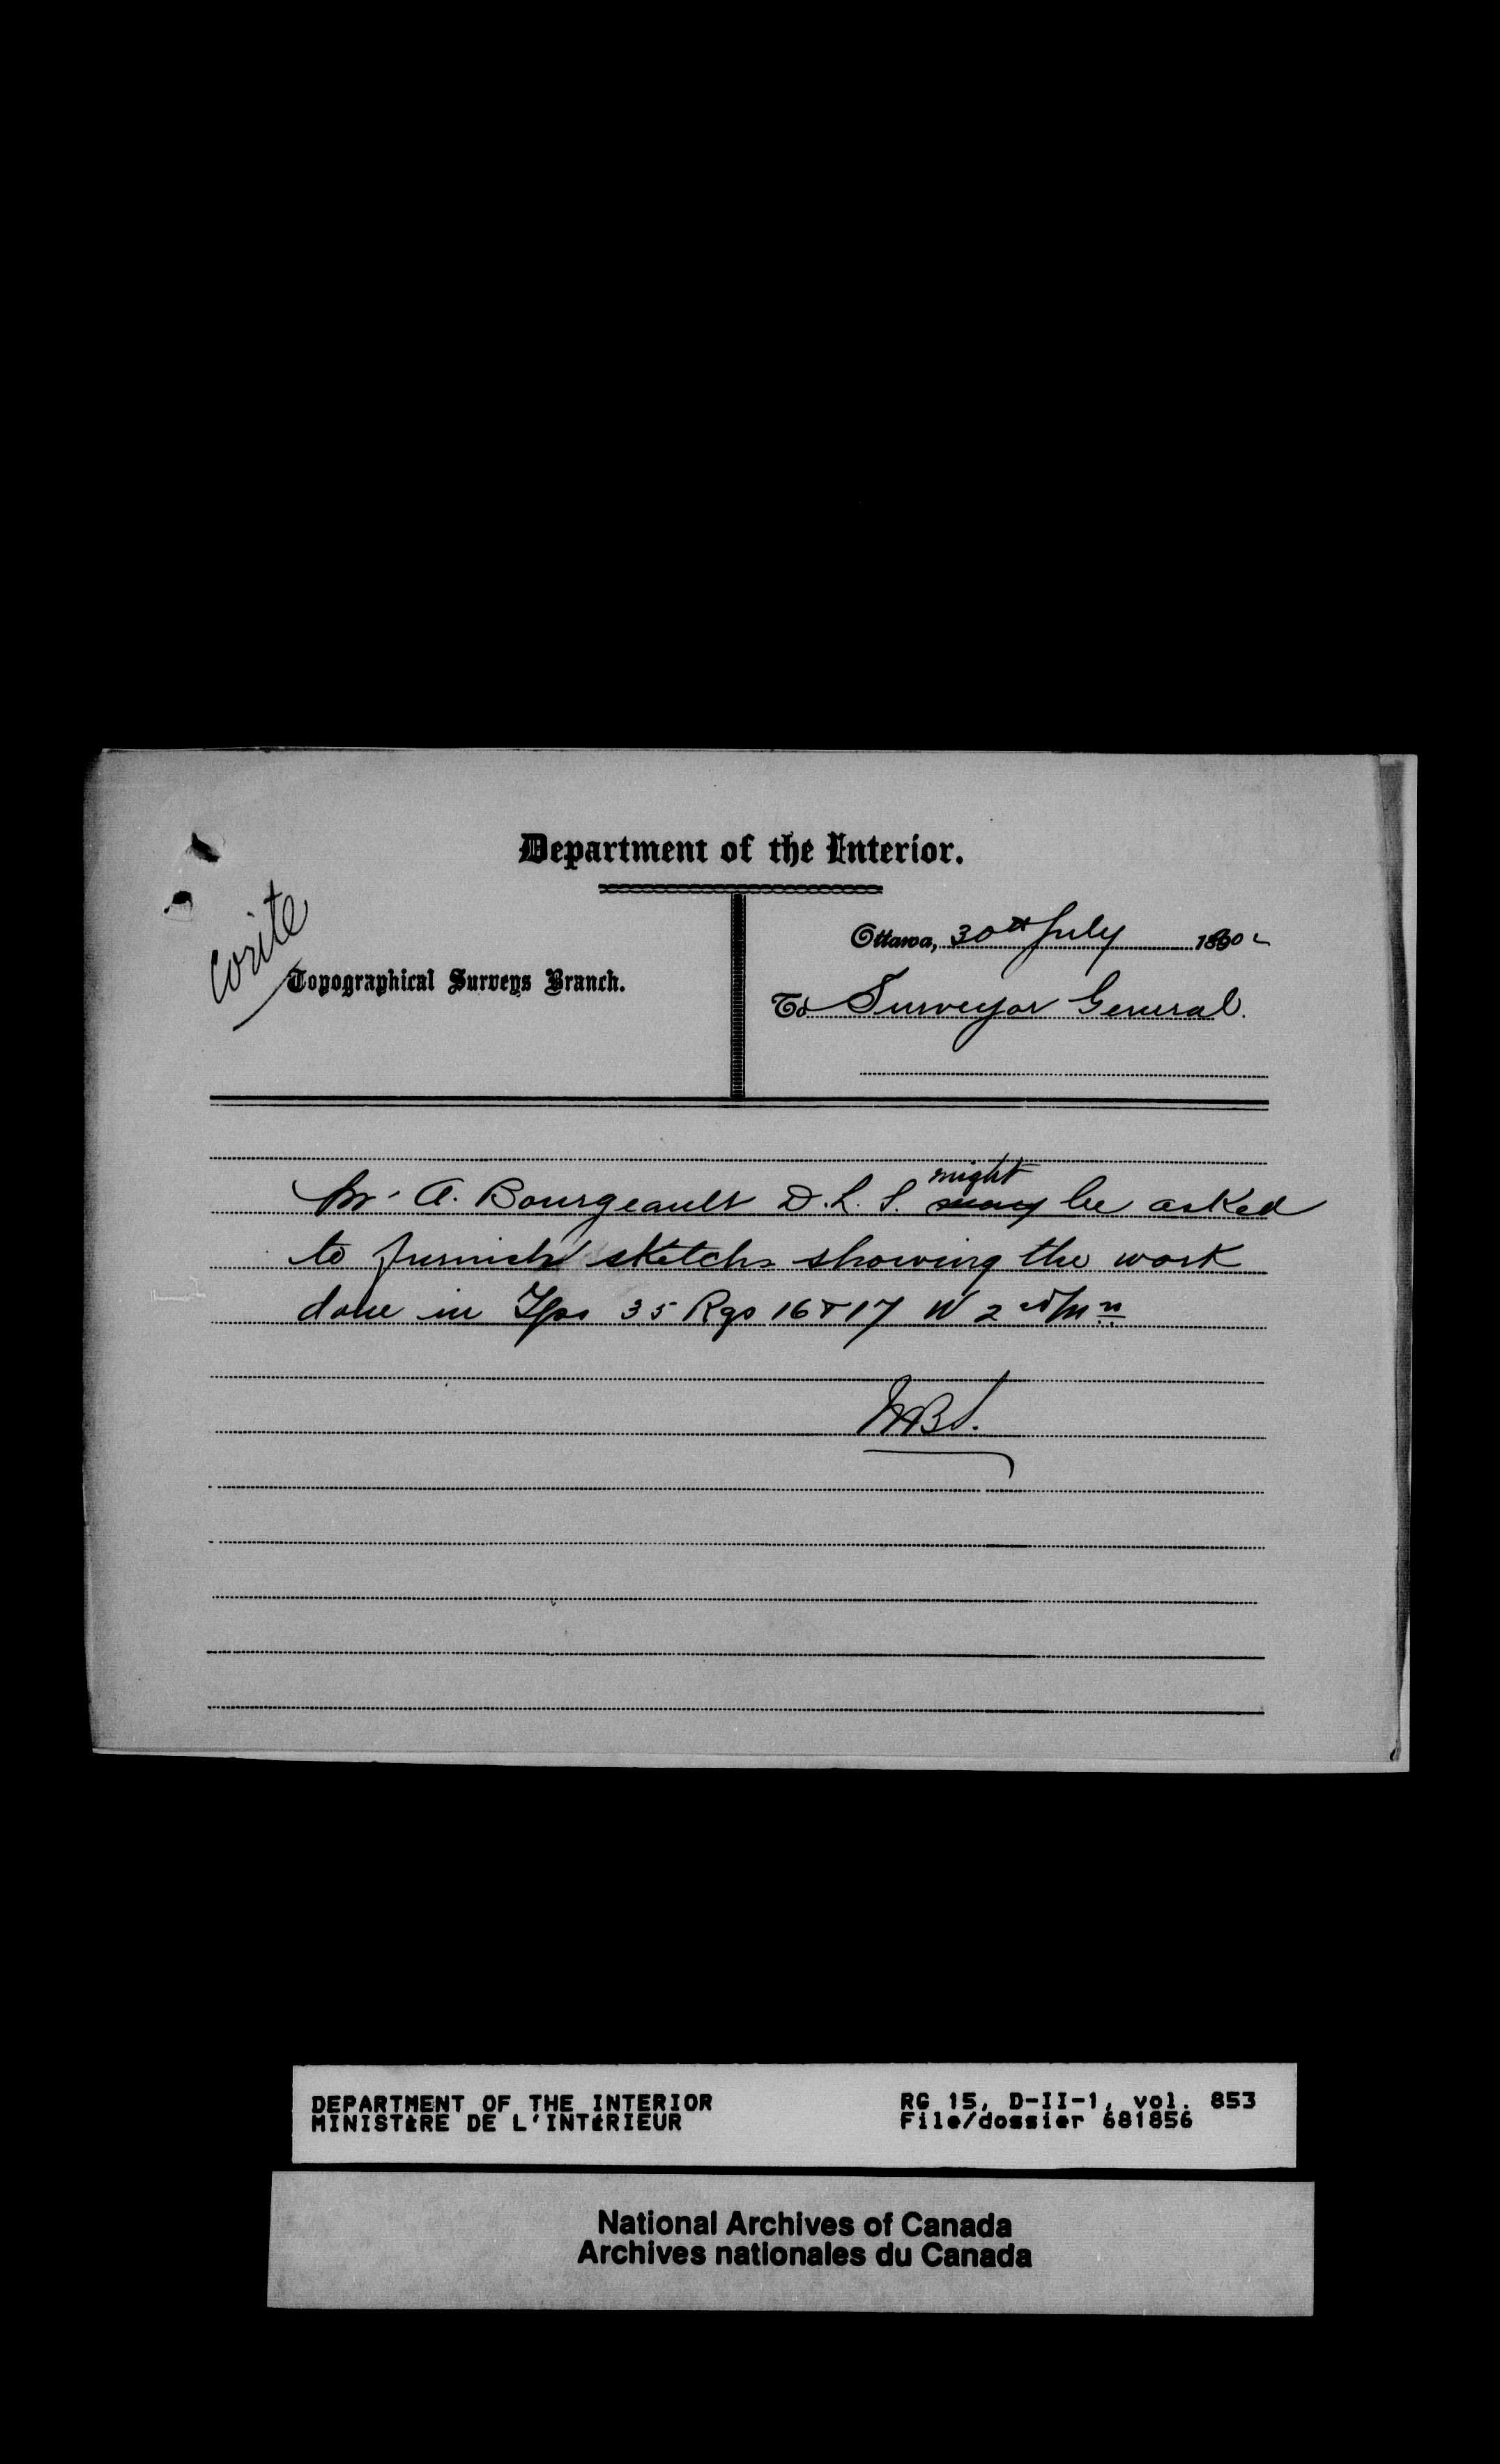 Department of the Interior.
write
Topographical Surveys Branch.
Ottawa, 30th July 1902
To Surveyor General.
might
Mr. A. Bourgeault D.L.S. may be asked
to furnish sketchs showing the work
done in Tps 35 Rgs 16 & 17 W 2nd Mn
DEPARTMENT OF THE INTERIOR
MINISTÈRE DE L'INTÉRIEUR
RG 15, D-II-1, vol. 853
File/dossier 681856
National Archives of Canada
Archives nationales du Canada